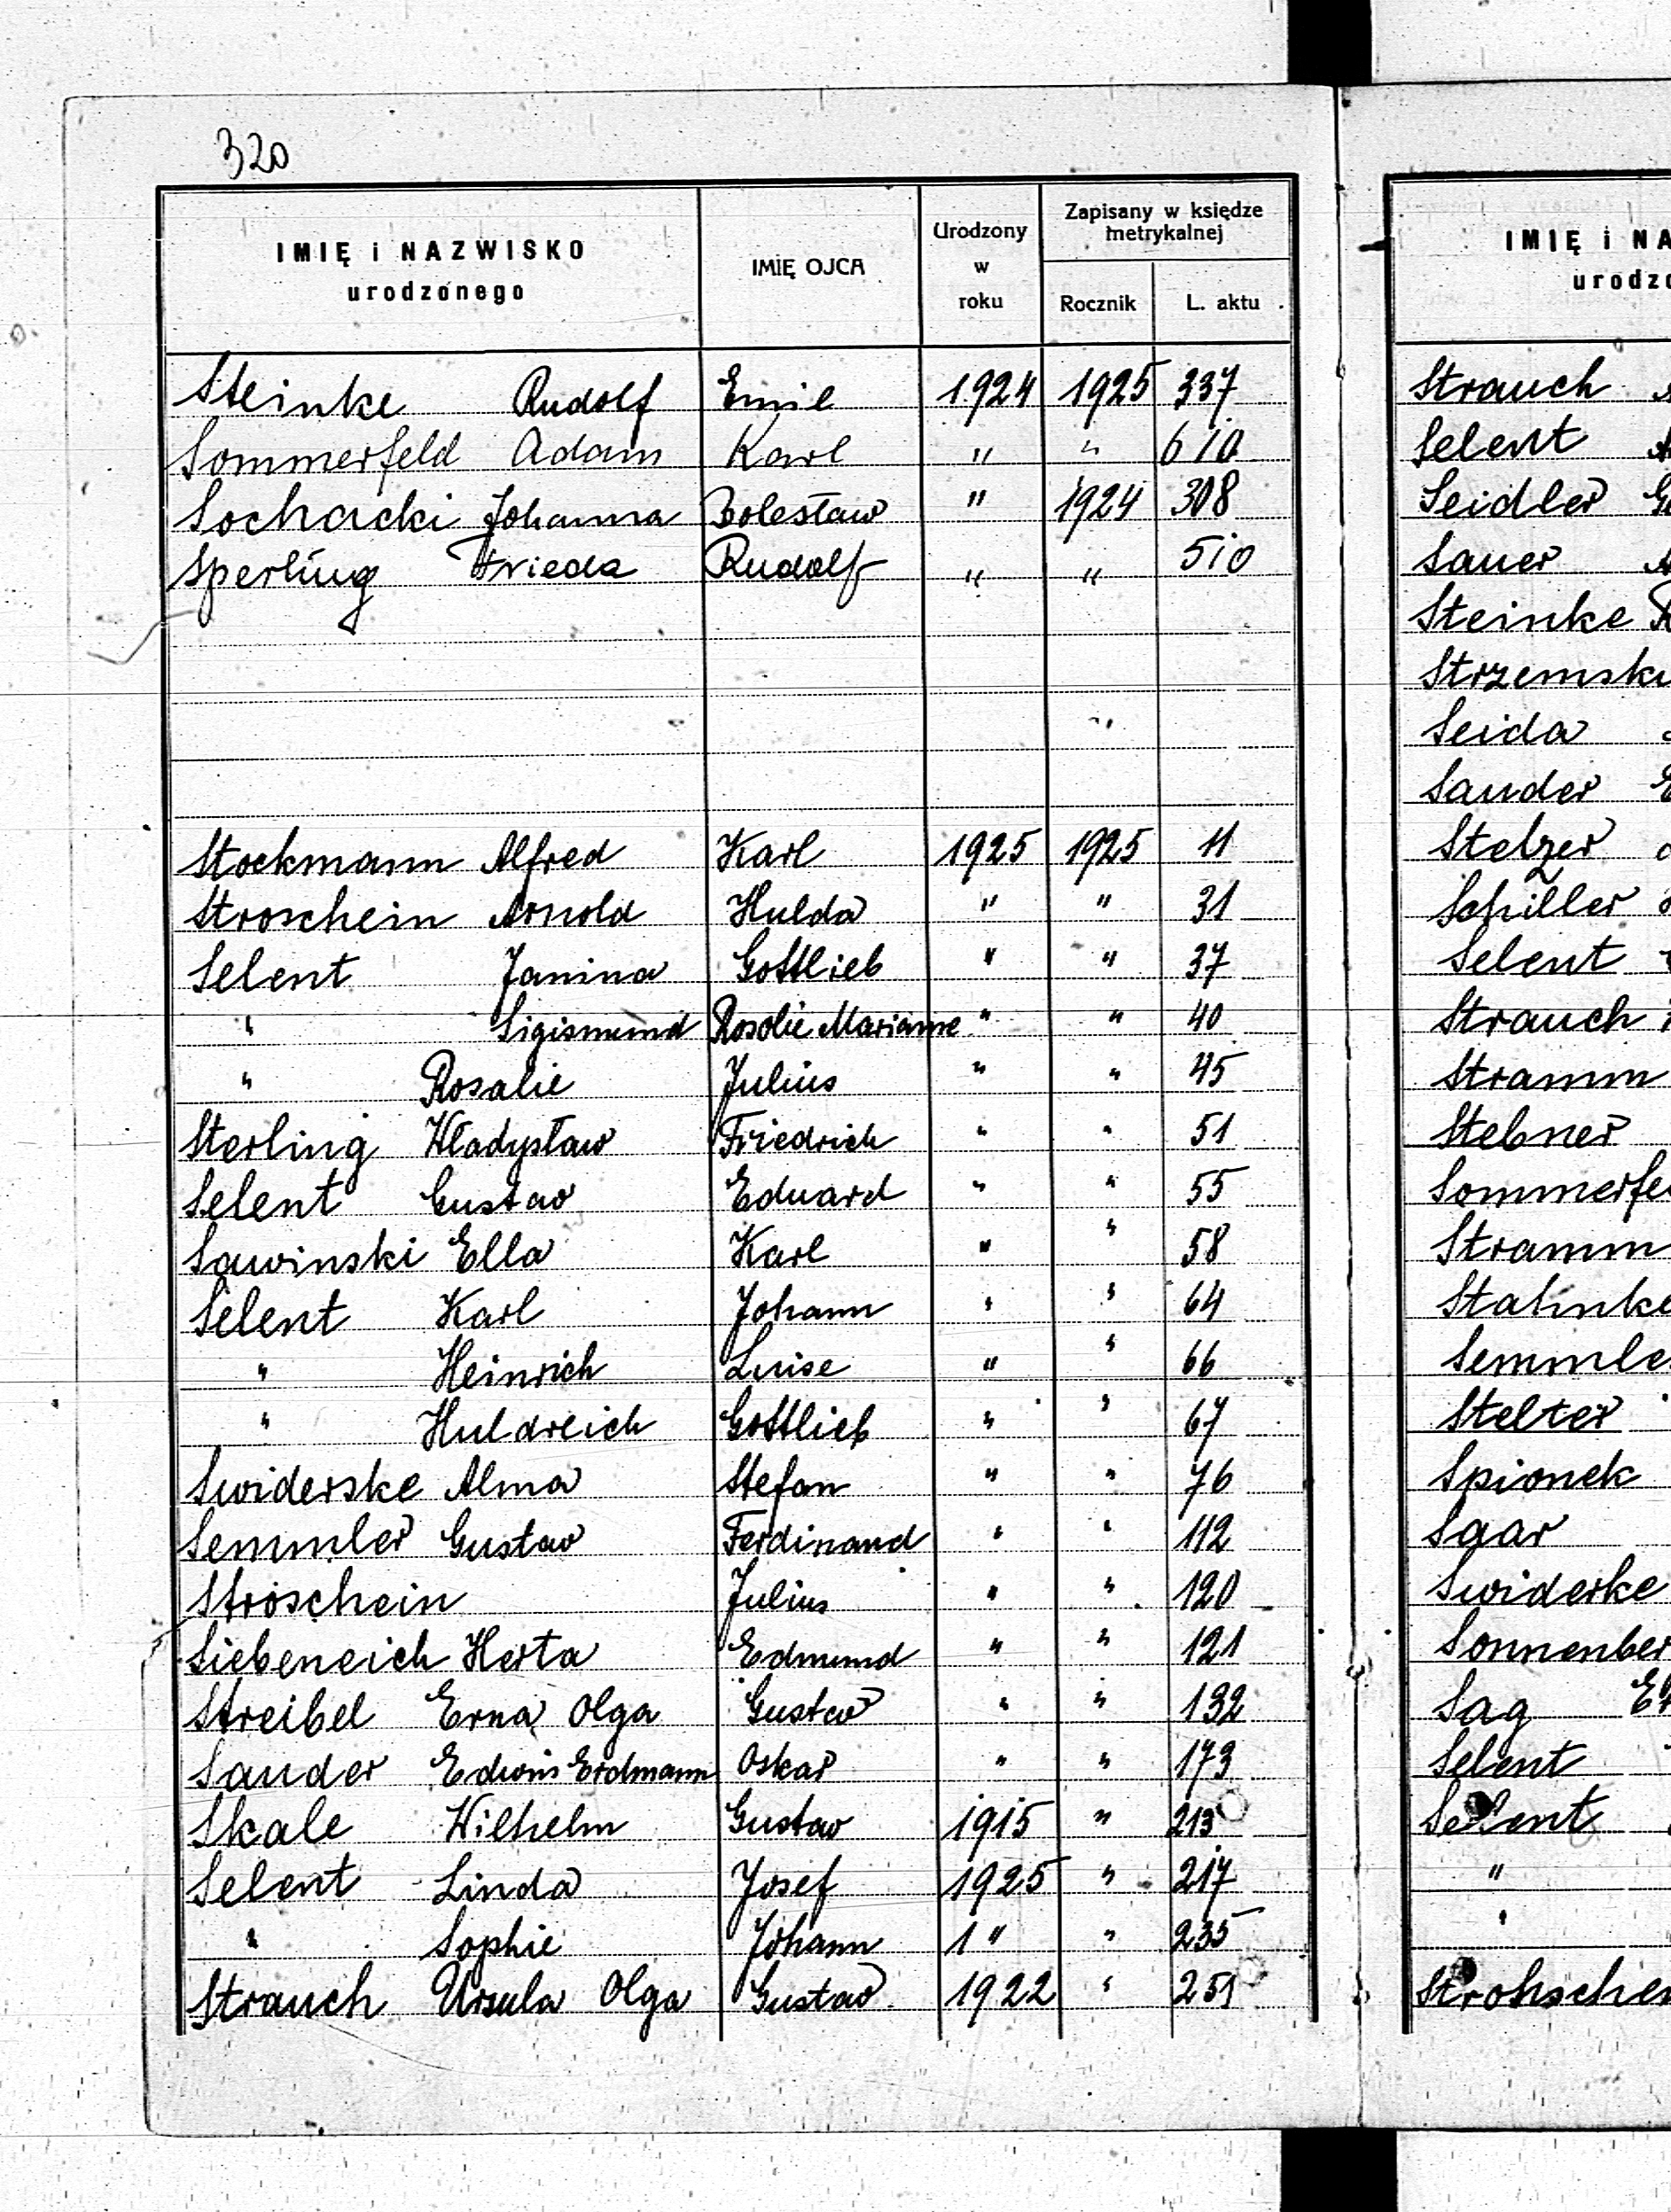 320
IMIĘ i NAZWISKO urodzonego IMIĘ OJCA Urodzony w roku Zapisany w księdze metrykalnej Rocznik L. aktu
Steinke Rudolf Emil 1924 1925 337
Sommerfeld Adam Karl " " 610
Sochacki Johanna Bolesław " 1924 308
Sperling Frieda Rudolf " " 510
Stockmann Alfred Karl 1925 1925 11
Stroschein Arnold Hulda " " 31
Selent Janina Gottlieb " " 37
" Sigismund Rosolie Marianne " " 40
" Rosalie Julius " " 45
Sterling Władysław Friedrich " " 51
Selent Gustav Eduard " " 55
Sawinski Ella Karl " " 58
Selent Karl Johann " " 64
" Heinrich Luise " " 66
" Huldreich Gottlieb " " 67
Swiderske Alma Stefan " " 76
Semmler Gustav Ferdinand " " 112
Ströschein Julius " " 120
Siebeneich Herta Edmund " " 121
Streibel Erna Olga Gustav " " 132
Sander Edwin Erdmann Oskar " " 173
Skale Wilhelm Gustav 1915 " 213
Selent Linda Josef 1925 " 217
" Sophie Johann 1 " " 235
Strauch Ursula Olga Gustav 1922 " 251
IMIĘ i NA
urodzo
Strauch
Selent
Seidler
Sauer
Steinke
Strzemski
Seida
Sander
Stelzer
Schiller
Selent
Strauch
Stramm
Stebner
Sommerfe
Stramm
Stahnke
Semmle
Stelter
Spionek
Saar
Swiderke
Sonnenber
Sag
Selent
Selent
"
"
Strohschei